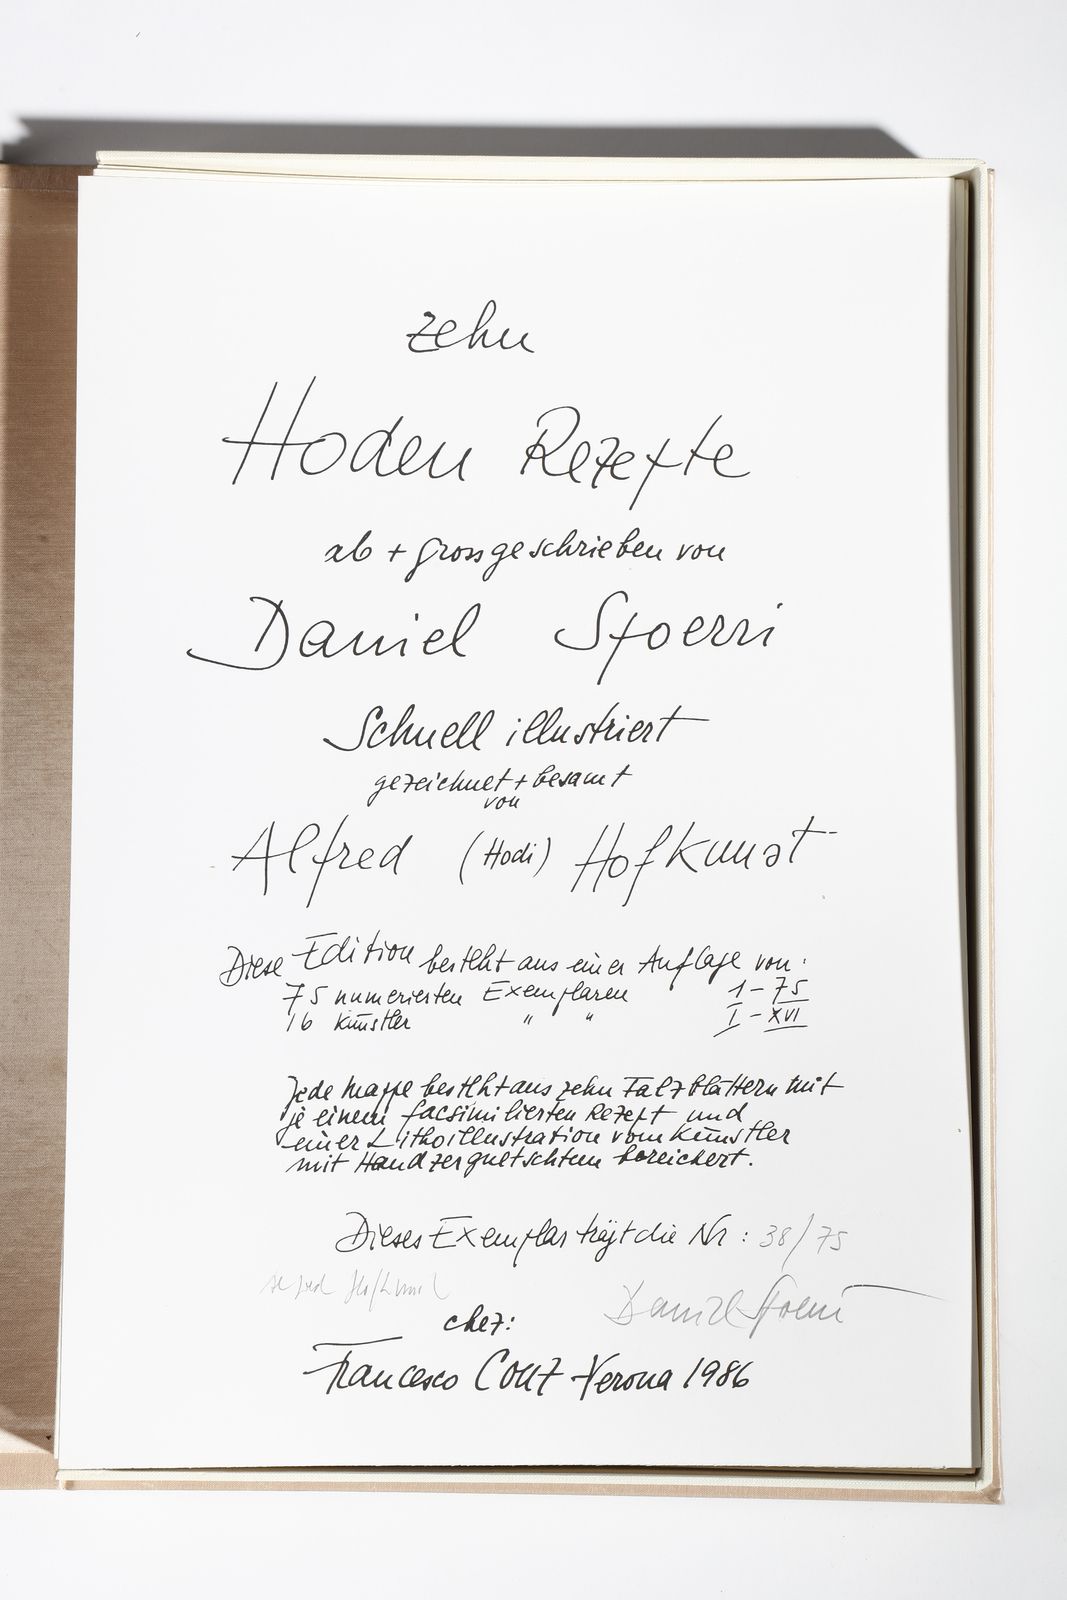 zehn
Hoden Rezepte
ab + grossgeschrieben von
Daniel Spoerri
Schnell illustriert
gezeichnet + besamt
von
Alfred (Hodi) Hofkunst
Diese Edition besteht aus einer Auflage von:
75 numerierten Exemplaren 1 - 75
16 Künstler " " I - XVI
Jede Mappe besteht aus zehn Falzblättern mit
je einem facsimilierten Rezept und
einer Lithoillustration vom Künstler
mit Handzerquetschtem bereichert.
Dieses Exemplar trägt die Nr : 38/75
Alfred Hofkunst
Daniel Spoerri
chez:
Francesco Conz Verona 1986